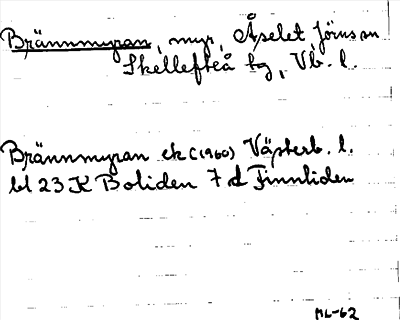 Brännmyran, myr, Åselet, Jörns sn
Skellefteå tg, Vb. l.
Brännmyran ek C(1960) Västerb. l.
bl 23 K Boliden 7 d Finnliden
ML-62